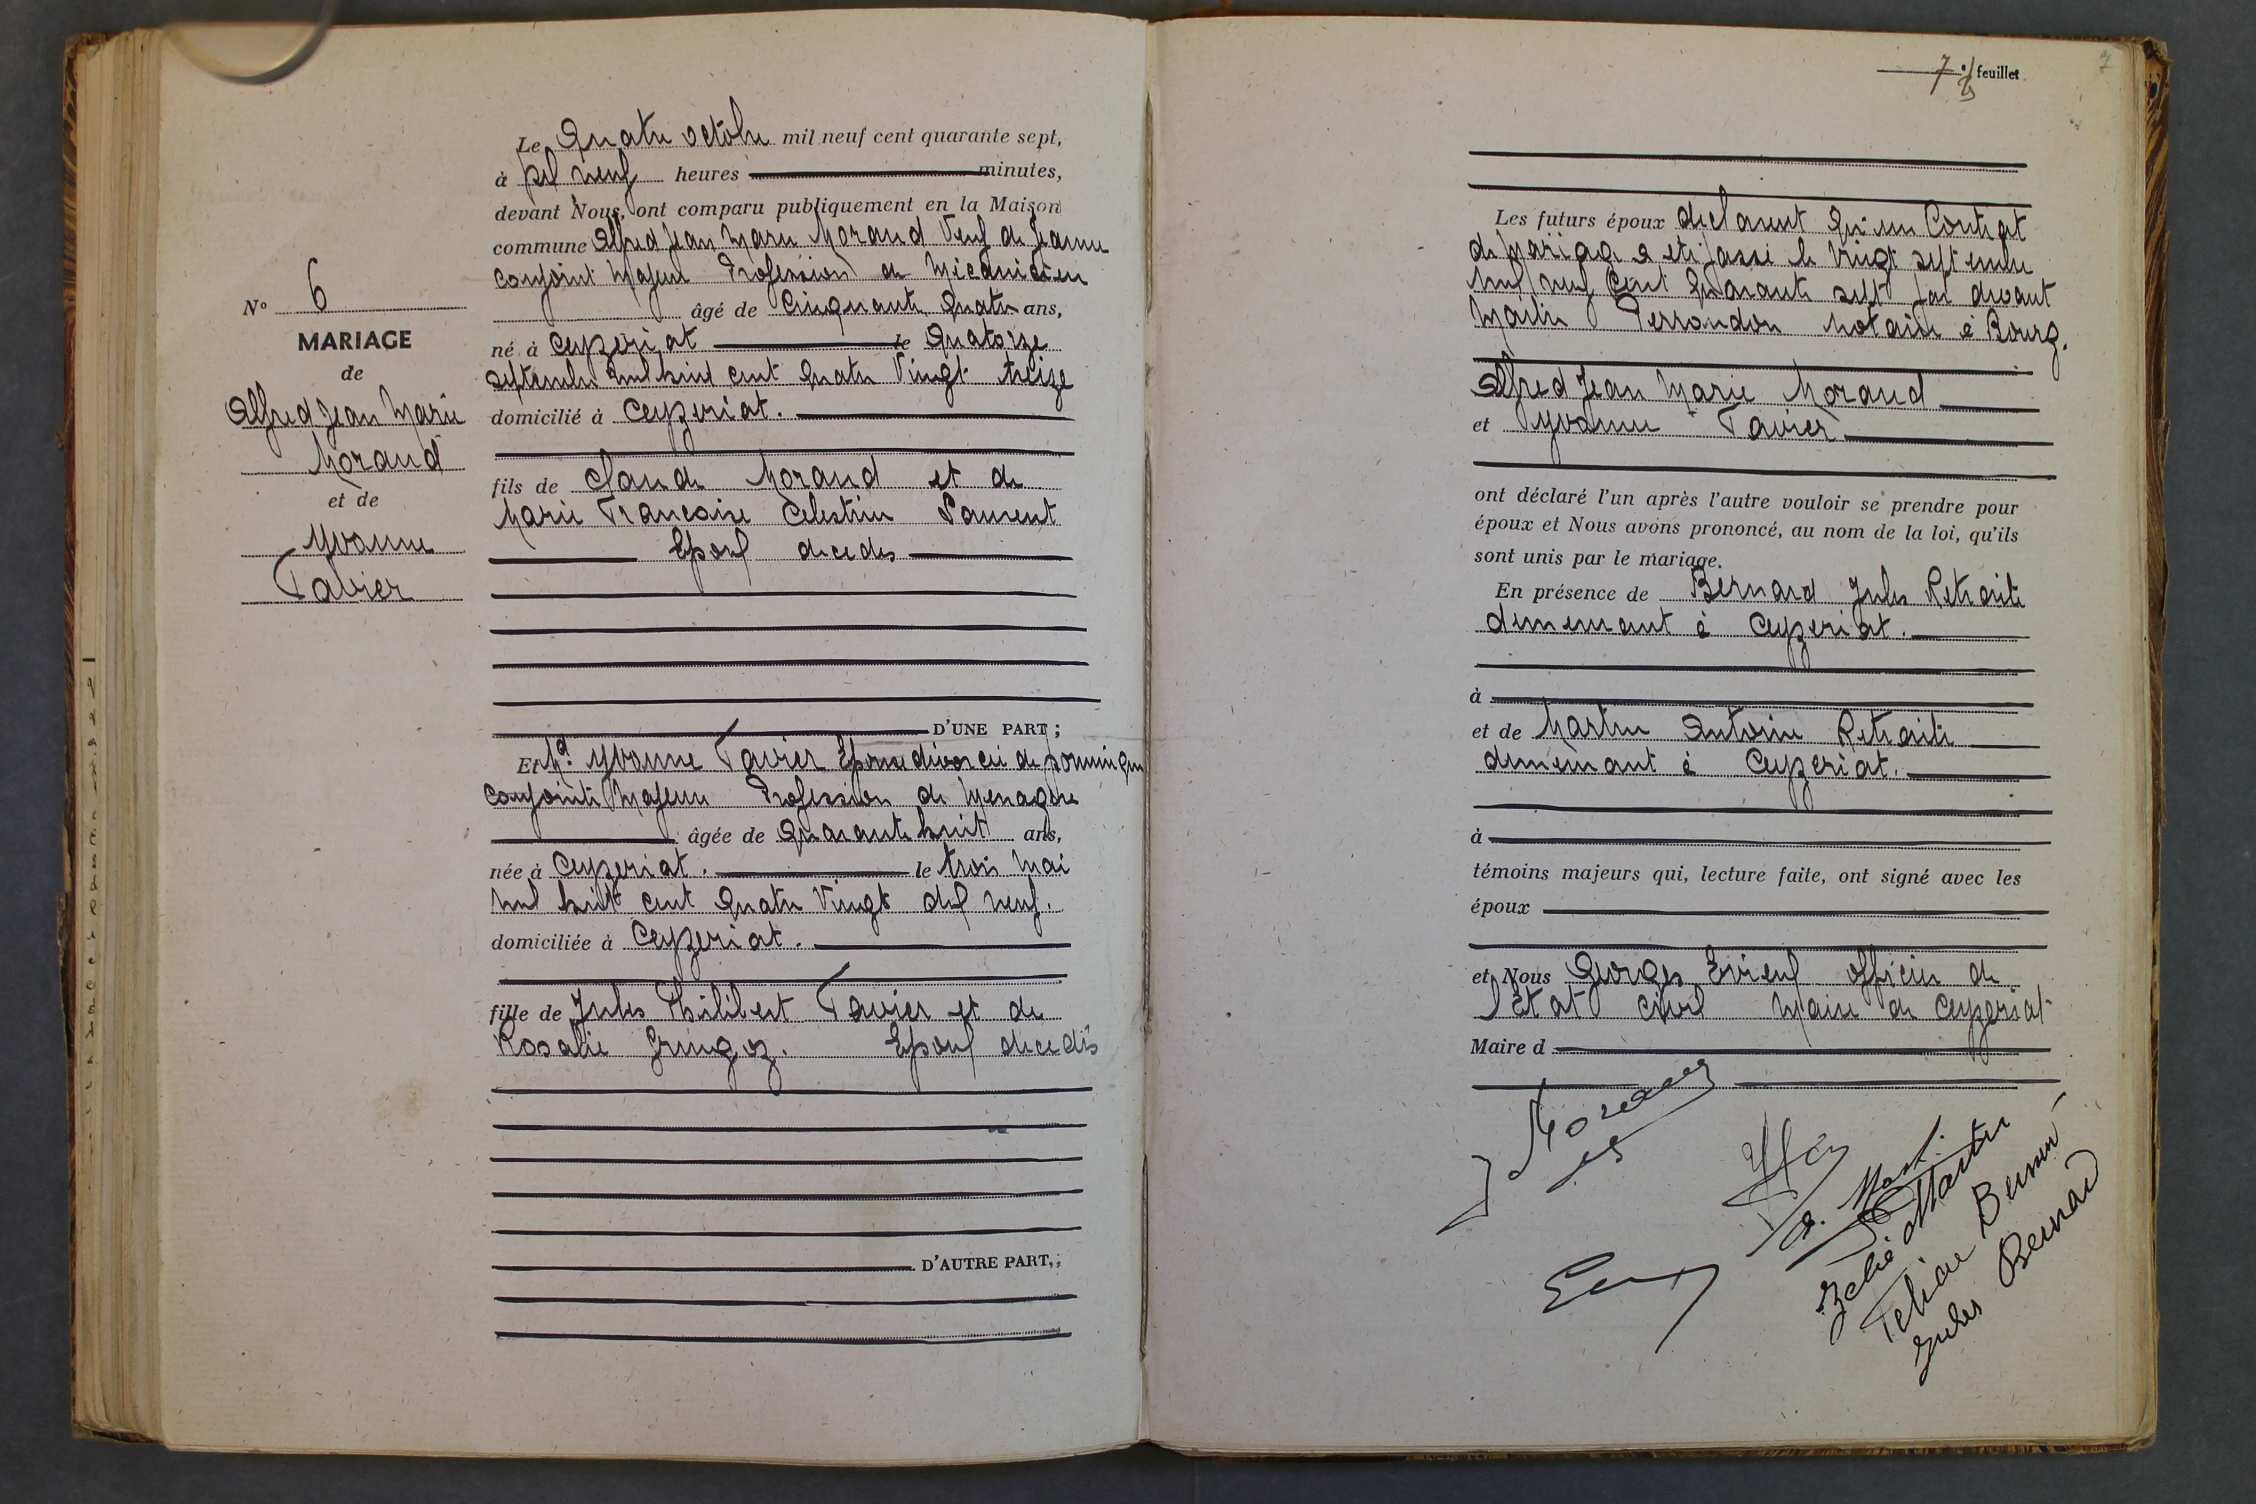 Le Quatre octobre mil neuf cent quarante sept,
à dix neuf heures minutes,
devant Nous, ont comparu publiquement en la Maison
commune Alfred Jean Marie Morand Veuf de Jeanne
conjoint Majeur Profession de Mécanicien
âgé de Cinquante Quatre ans,
né à Ceyzeriat le Quatorze
septembre mil huit cent quatre Vingt treize
domicilié à Ceyzeriat.
fils de Claude Morand et de
Marie Francoise Celestine Laurent
Epoux decedes
D'UNE PART ;
N° 6
MARIAGE
de
Alfred Jean Marie
Morand
et de
Yvonne
Tavier
Et Yvonne Tavier Epouse divorcée de
conjointe Majeure Profession de Menagère
âgée de Quarante huit ans,
née à Ceyzeriat. le trois Mai
mil huit cent Quatre Vingt dix neuf.
domiciliée à Ceyzeriat.
fille de Jules Philibert Tavier et de
Rosalie Gringoz. Epoux decedés
D'AUTRE PART,;
7 feuillet
7
Les futurs époux declarent Qu'un Contrat
de Mariage a eté passé le Vingt septembre
mil neuf Cent Quarante sept par devant
Perrondon Notaire à Bourg.
Alfred Jean Marie Morand
et Yvonne Tavier
ont déclaré l'un après l'autre vouloir se prendre pour
époux et Nous avons prononcé, au nom de la loi, qu'ils
sont unis par le mariage.
En présence de Bernard Jules Retraité
demeurant à Ceyzeriat.
à
et de Martin Antoine Retraité
demeurant à Ceyzeriat.
à
témoins majeurs qui, lecture faite, ont signé avec les
époux
et Nous Georges officier de
l'Etat civil Maire de Ceyzeriat
Maire d
Morand
Martin
Jules Bernard